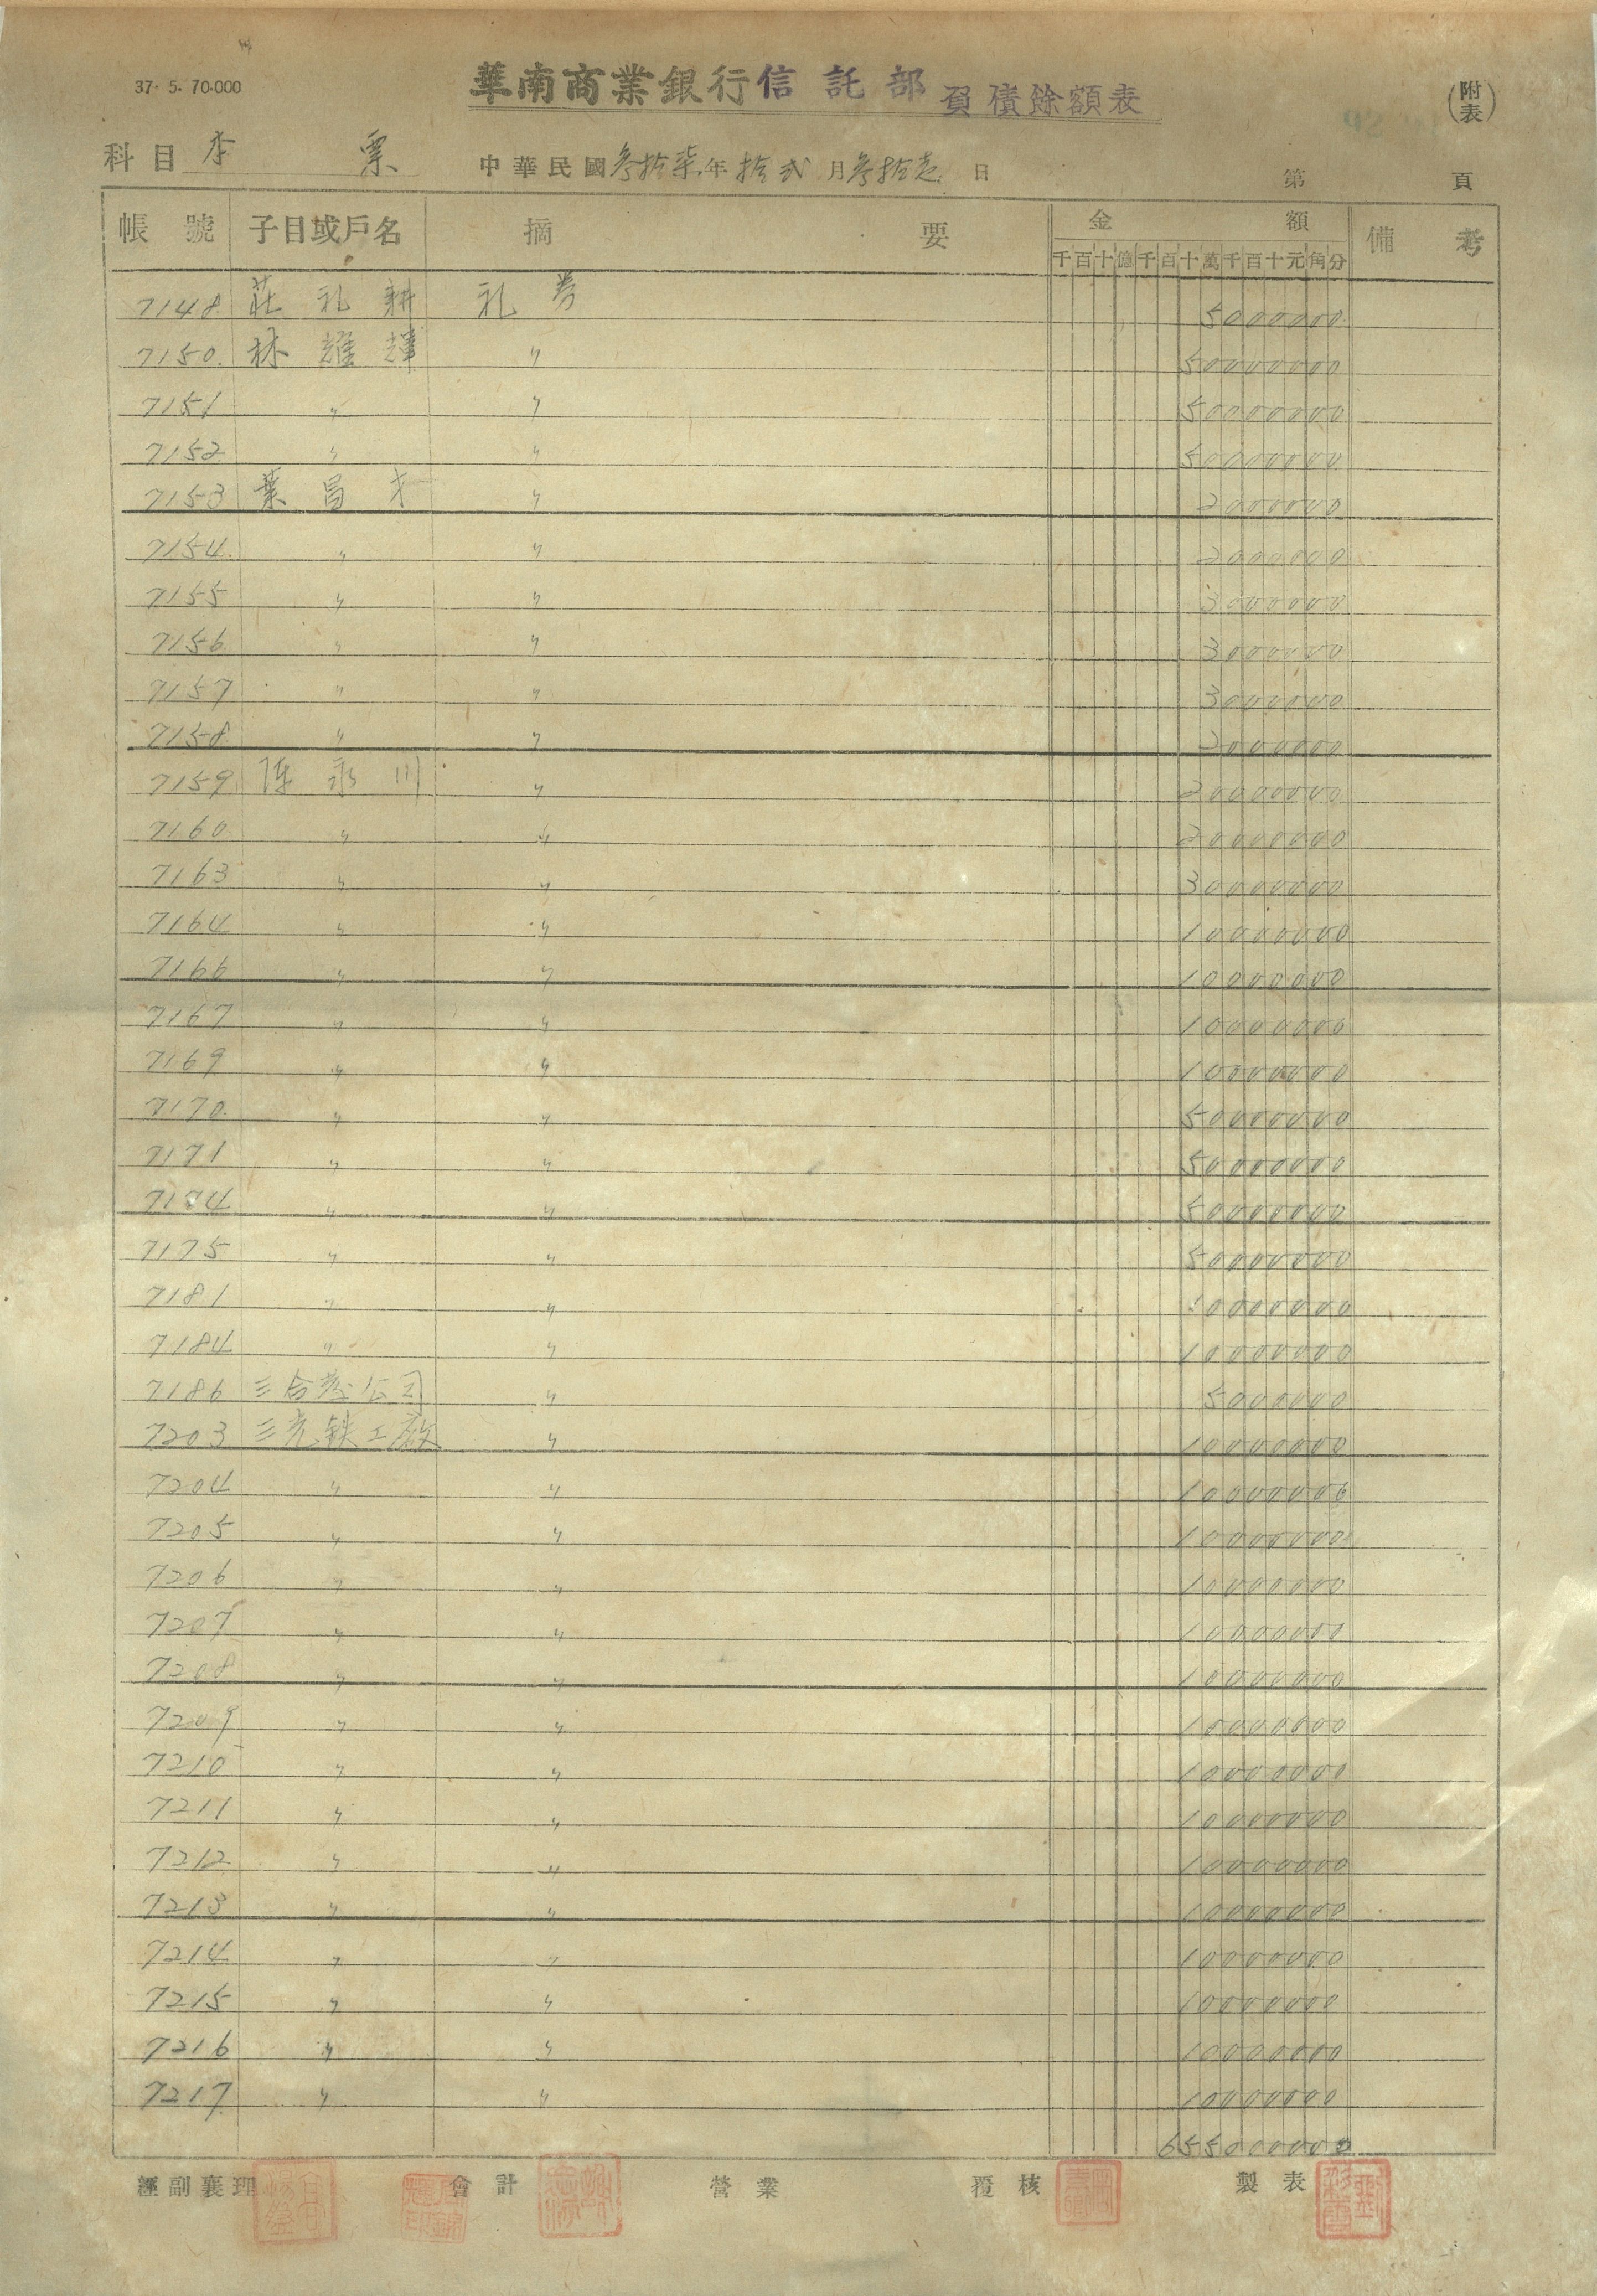 37. 5. 70.000
華南商業銀行信託部 負債餘額表
(附表)
科目 本票 中華民國參拾柒年拾弍月參拾壱日 第 頁
帳號 子目或戶名 摘要 金額 備考
千百十億千百十萬千百十元角分
7148 莊礼耕 礼券 5000000
7150. 林耀輝 〃 50000000
7151 〃 〃 50000000
7152 〃 〃 50000000
7153 葉昌才 〃 2000000
7154. 〃 〃 2000000
7155 〃 〃 3000000
7156 〃 〃 3000000
7157 〃 〃 3000000
7158 〃 〃 2000000
7159 陈永川 〃 20000000
7160 〃 〃 20000000
7163 〃 〃 30000000
7164 〃 〃 10000000
7166 〃 〃 10000000
7167 〃 〃 10000000
7169 〃 〃 10000000
7170. 〃 〃 50000000
7171 〃 〃 50000000
7174 〃 〃 50000000
7175 〃 〃 50000000
7181 〃 〃 10000000
7184 〃 〃 10000000
7186 三合 公司 〃 5000000
7203 三光鉄工廠 〃 10000000
7204 〃 〃 10000000
7205 〃 〃 10000000
7206 〃 〃 10000000
7207 〃 〃 10000000
7208 〃 〃 10000000
7209 〃 〃 10000000
7210 〃 〃 10000000
7211 〃 〃 10000000
7212 〃 〃 10000000
7213 〃 〃 10000000
7214 〃 〃 10000000
7215 〃 〃 10000000
7216 〃 〃 10000000
7217 〃 〃 10000000
655000000
經副襄理 會計 營業 覆核 製表